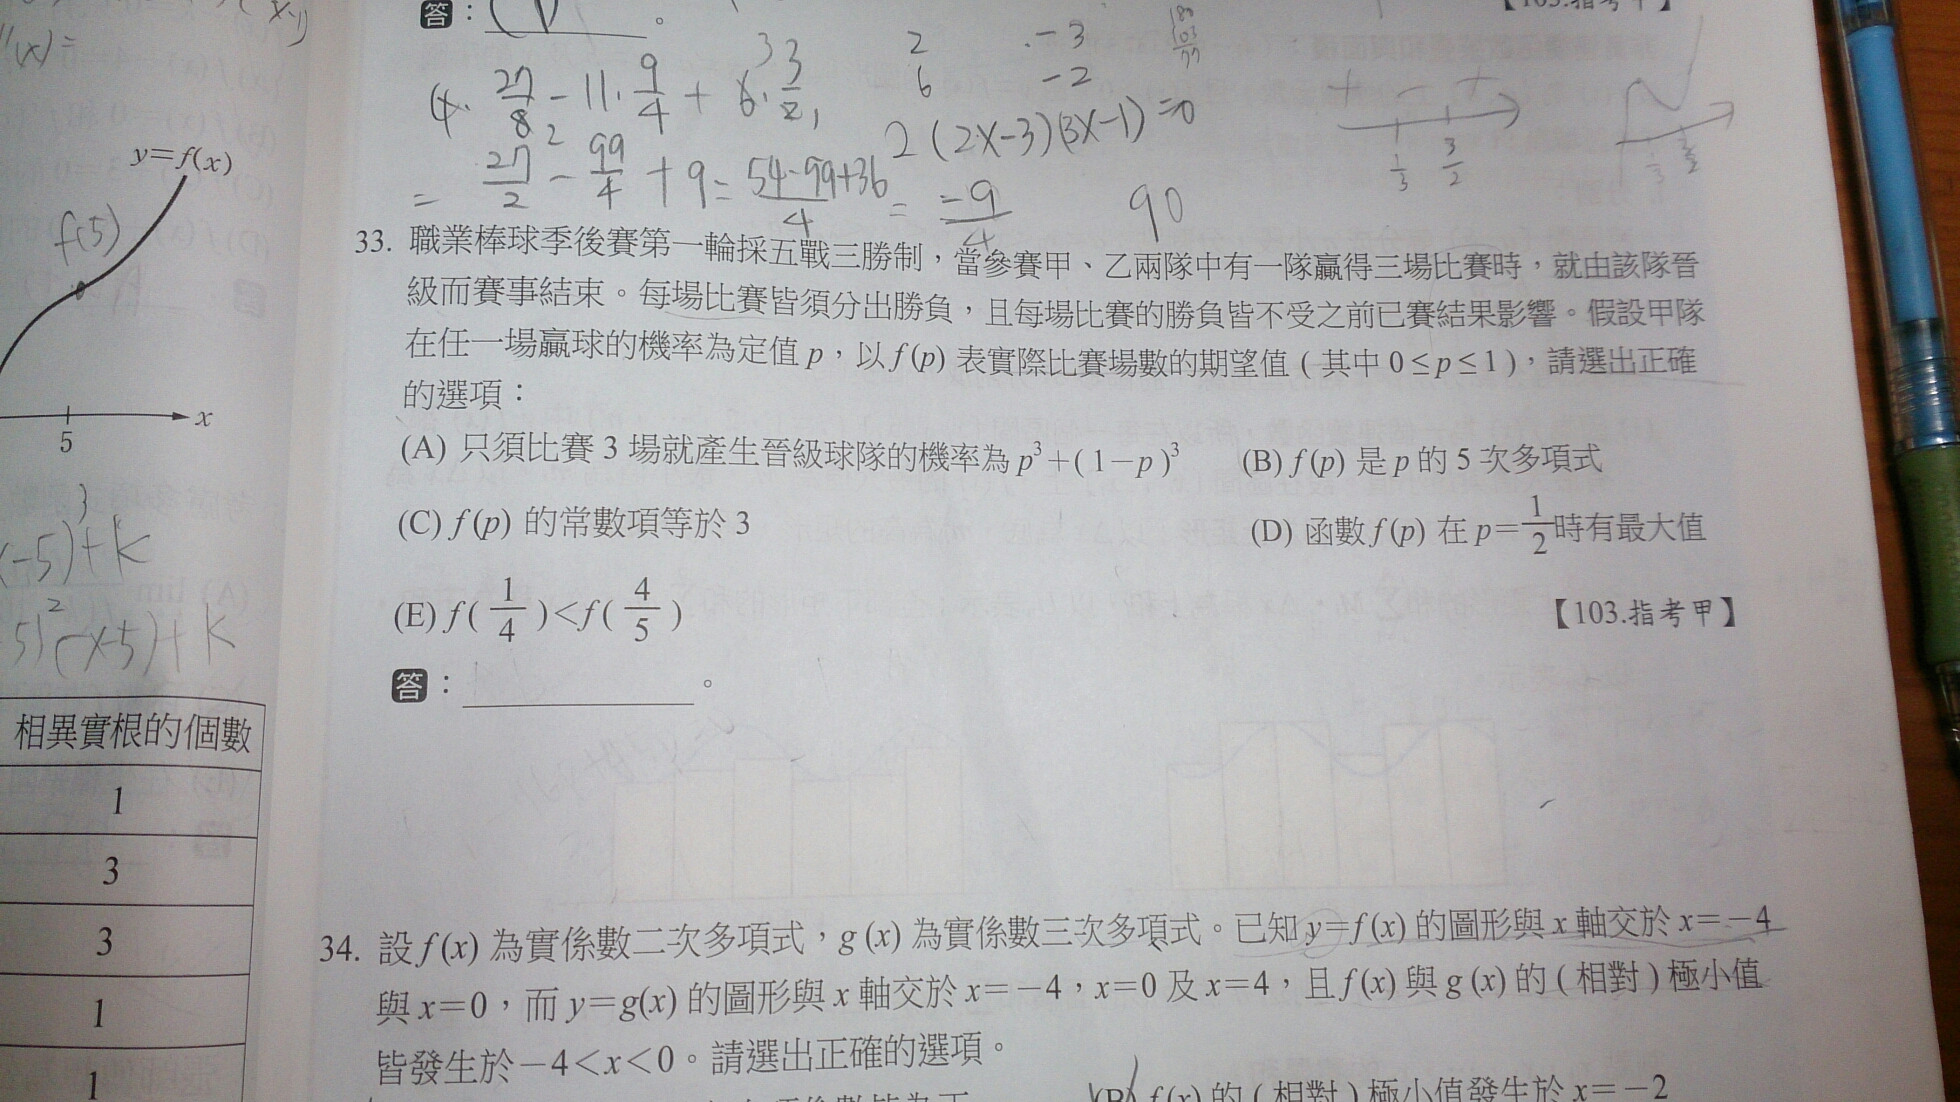 答：
。
【103.指考甲】
4·27/8－11·9/4＋6·3/2
＝27/2－99/4＋9＝(54-99+36)/4＝-9/4
2 -3
6 -2
2(2x-3)(3x-1)=0
90
+ - +
1/3 3/2
33. 職業棒球季後賽第一輪採五戰三勝制，當參賽甲、乙兩隊中有一隊贏得三場比賽時，就由該隊晉
級而賽事結束。每場比賽皆須分出勝負，且每場比賽的勝負皆不受之前已賽結果影響。假設甲隊
在任一場贏球的機率為定值 p，以 f(p) 表實際比賽場數的期望值（其中 0≤p≤1），請選出正確
的選項：
(A) 只須比賽 3 場就產生晉級球隊的機率為 p³＋(1－p)³ (B) f(p) 是 p 的 5 次多項式
(C) f(p) 的常數項等於 3 (D) 函數 f(p) 在 p＝1/2 時有最大值
(E) f(1/4)＜f(4/5) 【103.指考甲】
答：
。
34. 設 f(x) 為實係數二次多項式，g(x) 為實係數三次多項式。已知 y＝f(x) 的圖形與 x 軸交於 x＝－4
與 x＝0，而 y＝g(x) 的圖形與 x 軸交於 x＝－4，x＝0 及 x＝4，且 f(x) 與 g(x) 的（相對）極小值
皆發生於－4＜x＜0。請選出正確的選項。
(B) f(x) 的（相對）極小值發生於 x＝－2
y＝f(x)
f(5)
x
5
相異實根的個數
1
3
3
1
1